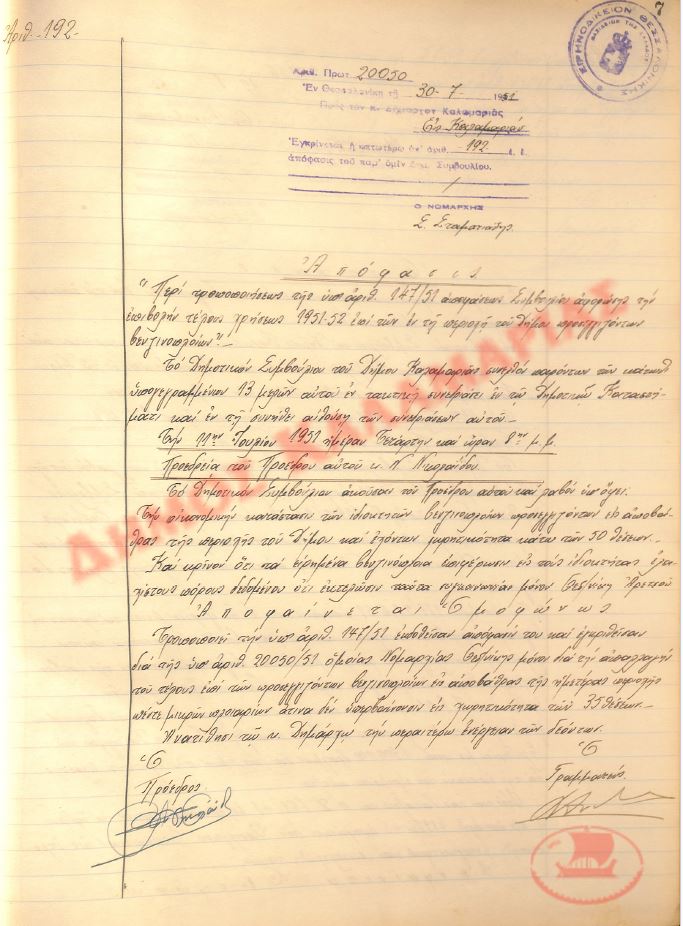 Ἀριθ. 192
7
ΕΙΡΗΝΟΔΙΚΕΙΟΝ ΘΕΣΣΑΛΟΝΙΚΗΣ
ΒΑΣΙΛΕΙΟΝ ΤΗΣ ΕΛΛΑΔΟΣ
Ἀριθ. Πρωτ. 20050
Ἐν Θεσσαλονίκῃ τῇ 30-7- 1951
Πρὸς τὸν κ. Δήμαρχον Καλαμαριᾶς
Εἰς Καλαμαριάν
Ἐγκρίνεται ἡ κατωτέρω ὑπ' ἀριθ. 192 ἐ. ἔ.
ἀπόφασις τοῦ παρ' ὑμῖν Δημ. Συμβουλίου.
Ο ΝΟΜΑΡΧΗΣ
Σ.
Ἀπόφασις
"Περί τροποποιήσεως τῆς ὑπ' ἀριθ. 147/51 ἀποφάσεως Συμβουλίου ἀφορώσης τήν
ἐπιβολήν τέλους χρήσεως 1951-52 ἐπί τῶν ἐν τῇ περιοχῇ τοῦ Δήμου προσεγγιζόντων
βενζινοπλοίων".-
Τό Δημοτικόν Συμβούλιον τοῦ Δήμου Καλαμαριᾶς συνελθόν παρόντων τῶν κάτωθι
ὑπογεγραμμένων 13 μελῶν αὐτοῦ ἐν τακτικῇ συνεδριάσει ἐν τῷ Δημοτικῷ Καταστή-
ματι καί ἐν τῇ συνήθει αἰθούσῃ τῶν συνεδριάσεων αὐτοῦ.-
Τήν 11ην Ἰουλίου 1951 ἡμέραν Τετάρτην καί ὥραν 8ην μ.μ.
Προεδρεία τοῦ Προέδρου αὐτοῦ κ. Ν. Νικολαΐδου.
Τό Δημοτικόν Συμβούλιον ἀκοῦσαν τοῦ Προέδρου αὐτοῦ καί λαβόν ὑπ' ὄψει.
Τήν οἰκονομικήν κατάστασιν τῶν ἰδιοκτητῶν βενζινοπλοίων προσεγγιζόντων εἰς ἀποβά-
θρας τῆς περιοχῆς τοῦ Δήμου καί ἐχόντων χωρητικότητα κάτω τῶν 50 θέσεων.-
Καί κρίνον ὅτι τά εἰρημένα βενζινόπλοια ἐπιφέρωσιν εἰς τούς ἰδιοκτήτας ἐλα-
χίστους πόρους δεδομένου ὅτι ἐκτελῶσιν ταῦτα συγκοινωνίαν μόνον Θεσ/νίκης Ἀρετσοῦ
Ἀποφαίνεται Ὁμοφώνως
Τροποποιεῖ τήν ὑπ' ἀριθ. 147/51 ἐκδοθεῖσαν ἀπόφασίν του καί ἐγκριθεῖσαν
διά τῆς ὑπ' ἀριθ. 20050/51 ὁμοίας Νομαρχίας Θεσ/νίκης μόνον διά τήν ἀπαλλαγήν
τοῦ τέλους ἐπί τῶν προσεγγιζόντων βενζινοπλοίων εἰς ἀποβάθρας τῆς ἡμετέρας περιοχῆς
πέντε μικρῶν πλοιαρίων ἅτινα δέν ὑπερβαίνουσιν εἰς χωρητικότητα τῶν 35 θέσεων.-
Ἀνατίθησι τῷ κ. Δημάρχῳ τήν περαιτέρω ἐνέργειαν τῶν δεόντων.
Ὁ Ὁ
Πρόεδρος Γραμματεύς
ΔΗΜΟΣ ΚΑΛΑΜΑΡΙΑΣ